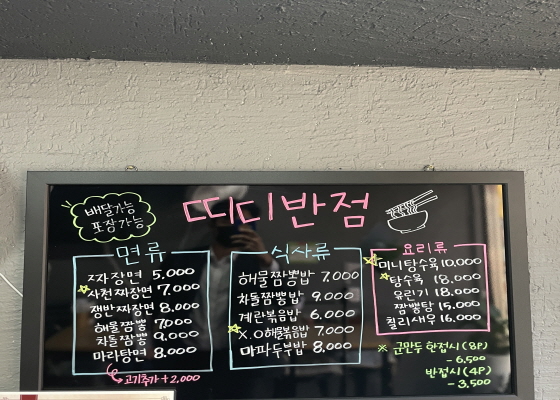 배달가능
포장가능
띠디반점
면류
짜장면 5,000
사천짜장면 7,000
쟁반짜장면 8,000
해물짬뽕 7,000
차돌짬뽕 9,000
마라탕면 8,000
고기추가 +2,000
식사류
해물짬뽕밥 7,000
차돌짬뽕밥 9,000
계란볶음밥 6,000
X.O해물볶음밥 7,000
마파두부밥 8,000
요리류
미니탕수육 10,000
탕수육 18,000
유린기 18,000
짬뽕탕 15,000
칠리새우 16,000
※ 군만두 한접시 (8P)
- 6,500
반접시 (4P)
- 3,500